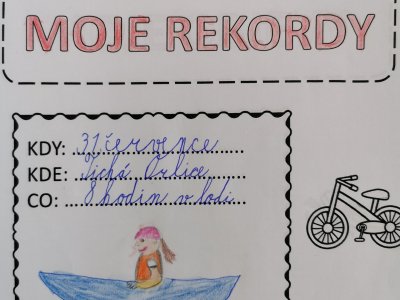 MOJE REKORDY
KDY: 31 července
KDE: Tichá Orlice
CO: 8 hodin v lodi